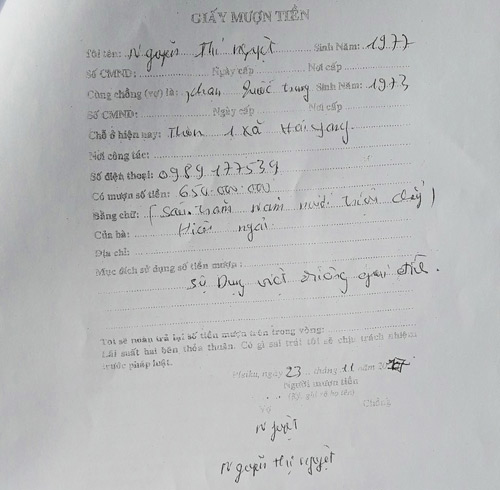 GIẤY MƯỢN TIỀN
Tôi tên: Nguyễn Thị Nguyệt Sinh Năm: 1977
Số CMND: Ngày cấp Nơi cấp
Cùng chồng (vợ) là: phan Quốc trung Sinh Năm: 1973
Số CMND: Ngày cấp Nơi cấp
Chỗ ở hiện nay: Thôn 1 Xã Hải yang.
Nơi công tác:
Số điện thoại: 0989177539
Có mượn số tiền: 650.000.000
Bằng chữ: (Sáu trăm năm mươi triệu chẵn)
Của bà: Hiền ngãi
Địa chỉ:
Mục đích sử dụng số tiền mượn:
Sử Dụng việt trong gia đình.
Tôi sẽ hoàn trả lại số tiền mượn trên trong vòng:
Lãi suất hai bên thỏa thuận. Có gì sai trái tôi sẽ chịu trách nhiệm
trước pháp luật.
Pleiku, ngày 23 tháng 11 năm
Người mượn tiền
(Ký, ghi rõ họ tên)
Vợ Chồng
Nguyệt
Nguyễn thị nguyệt